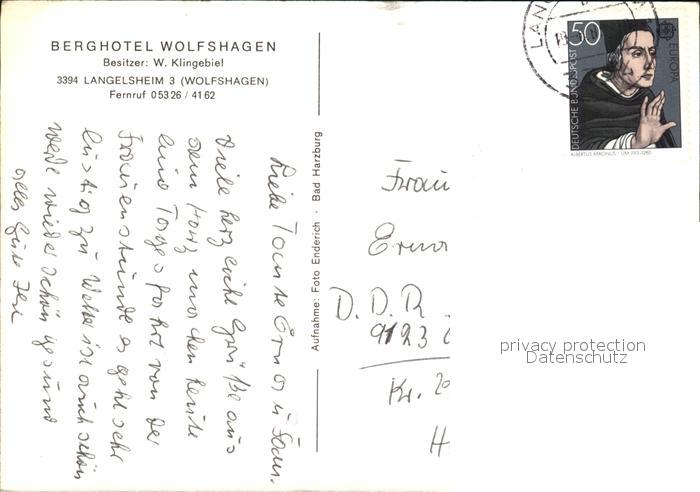 BERGHOTEL WOLFSHAGEN
Besitzer: W. Klingebiel
3394 LANGELSHEIM 3 (WOLFSHAGEN)
Fernruf 05326 / 4162
Liebe Tante Erna u Fam.
Viele herzliche Grüße aus
dem Harz machen heute
eine Tagesfahrt von der
Frauenstunde es geht sehr
lustig zu Wetter ist auch schön
werde wieder schön gesund
alles Gute Ihre
Aufnahme: Foto Enderich · Bad Harzburg
LAN
50
DEUTSCHE BUNDESPOST
EUROPA
ALBERTUS MAGNUS · UM 1193-1280
Frau
Erna
D.D.R
9123
Kr.
H
privacy protection
Datenschutz